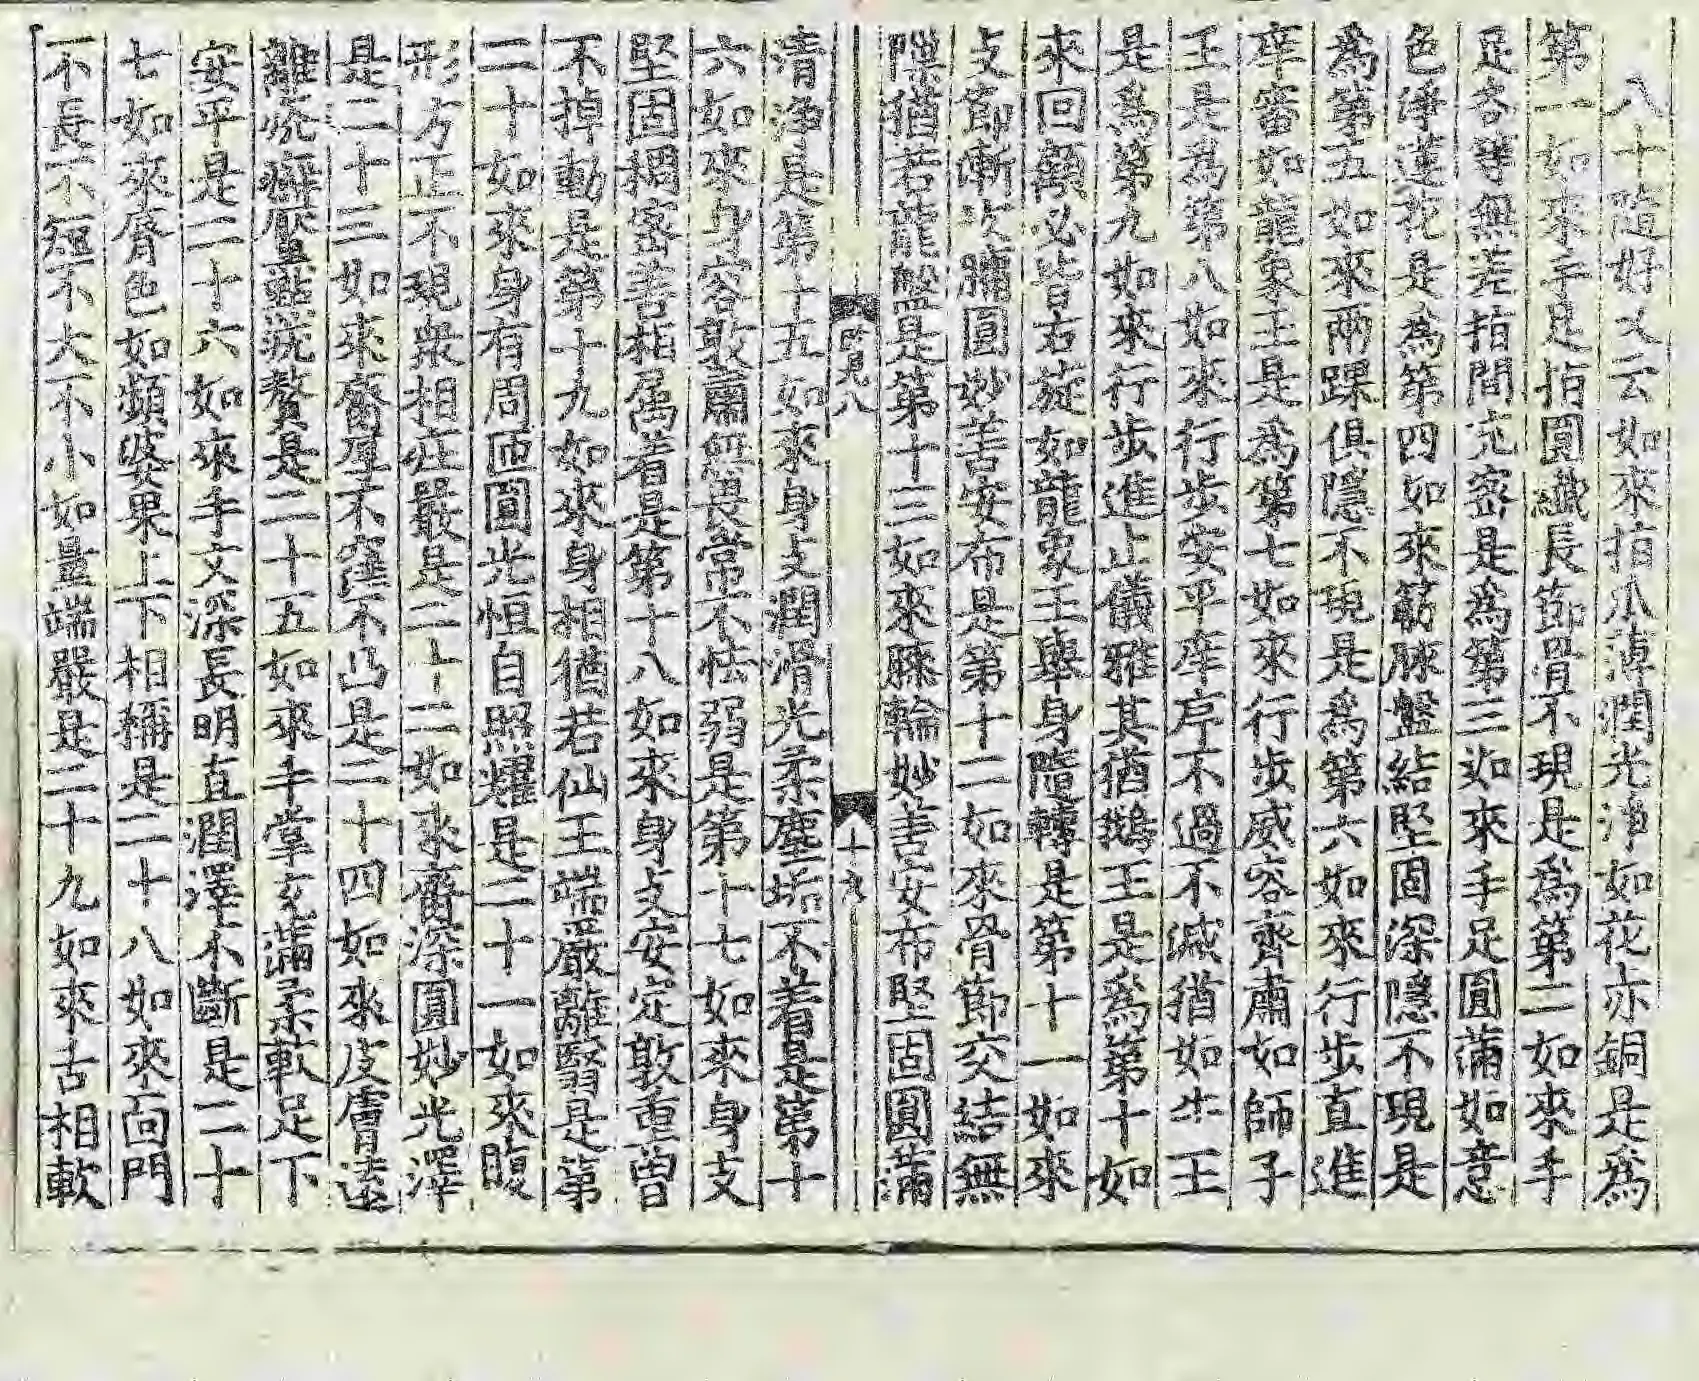 八十隨好文云如來指爪薄潤光淨如花赤銅是為
第一如來手足指圓纖長節骨不現是為第二如來手
足各等無差指間充密是為第三如來手足圓滿如意
色淨蓮花是為第四如來筋脉盤結堅固深隱不現是
為第五如來兩踝俱隱不現是為第六如來行步直進
庠審如龍象王是為第七如來行步威容齊肅如師子
王是為第八如來行步安平庠序不過不減猶如牛王
是為第九如來行步進止儀雅其猶鵝王是為第十如
來回顧必皆右旋如龍象王舉身隨轉是第十一如來
支節漸次𦟛圓妙善安布是第十二如來骨節交結無
隙猶若龍盤是第十三如來膝輪妙善安布堅固圓滿
是第十
清淨是第十五如來身支潤滑光柔塵垢不着是第十
六如來身容敦肅無畏常不怯弱是第十七如來身支
堅固稠密善相属着是第十八如來身支安定敦重曽
不掉動是第十九如來身相猶若仙王端嚴離翳是第
二十如來身有周匝圓光恒自照耀是二十一如來腹
形方正不現衆相庄嚴是二十二如來齊深圓妙光澤
是二十三如來齊厚不窪不凸是二十四如來皮膚遠
離疣癬黶點疣贅是二十五如來手掌充滿柔軟足下
安平是二十六如來手文深長明直潤澤不斷是二十
七如來脣色如頻婆果上下相稱是二十八如來面門
不長不短不大不小如量端嚴是二十九如來舌相軟